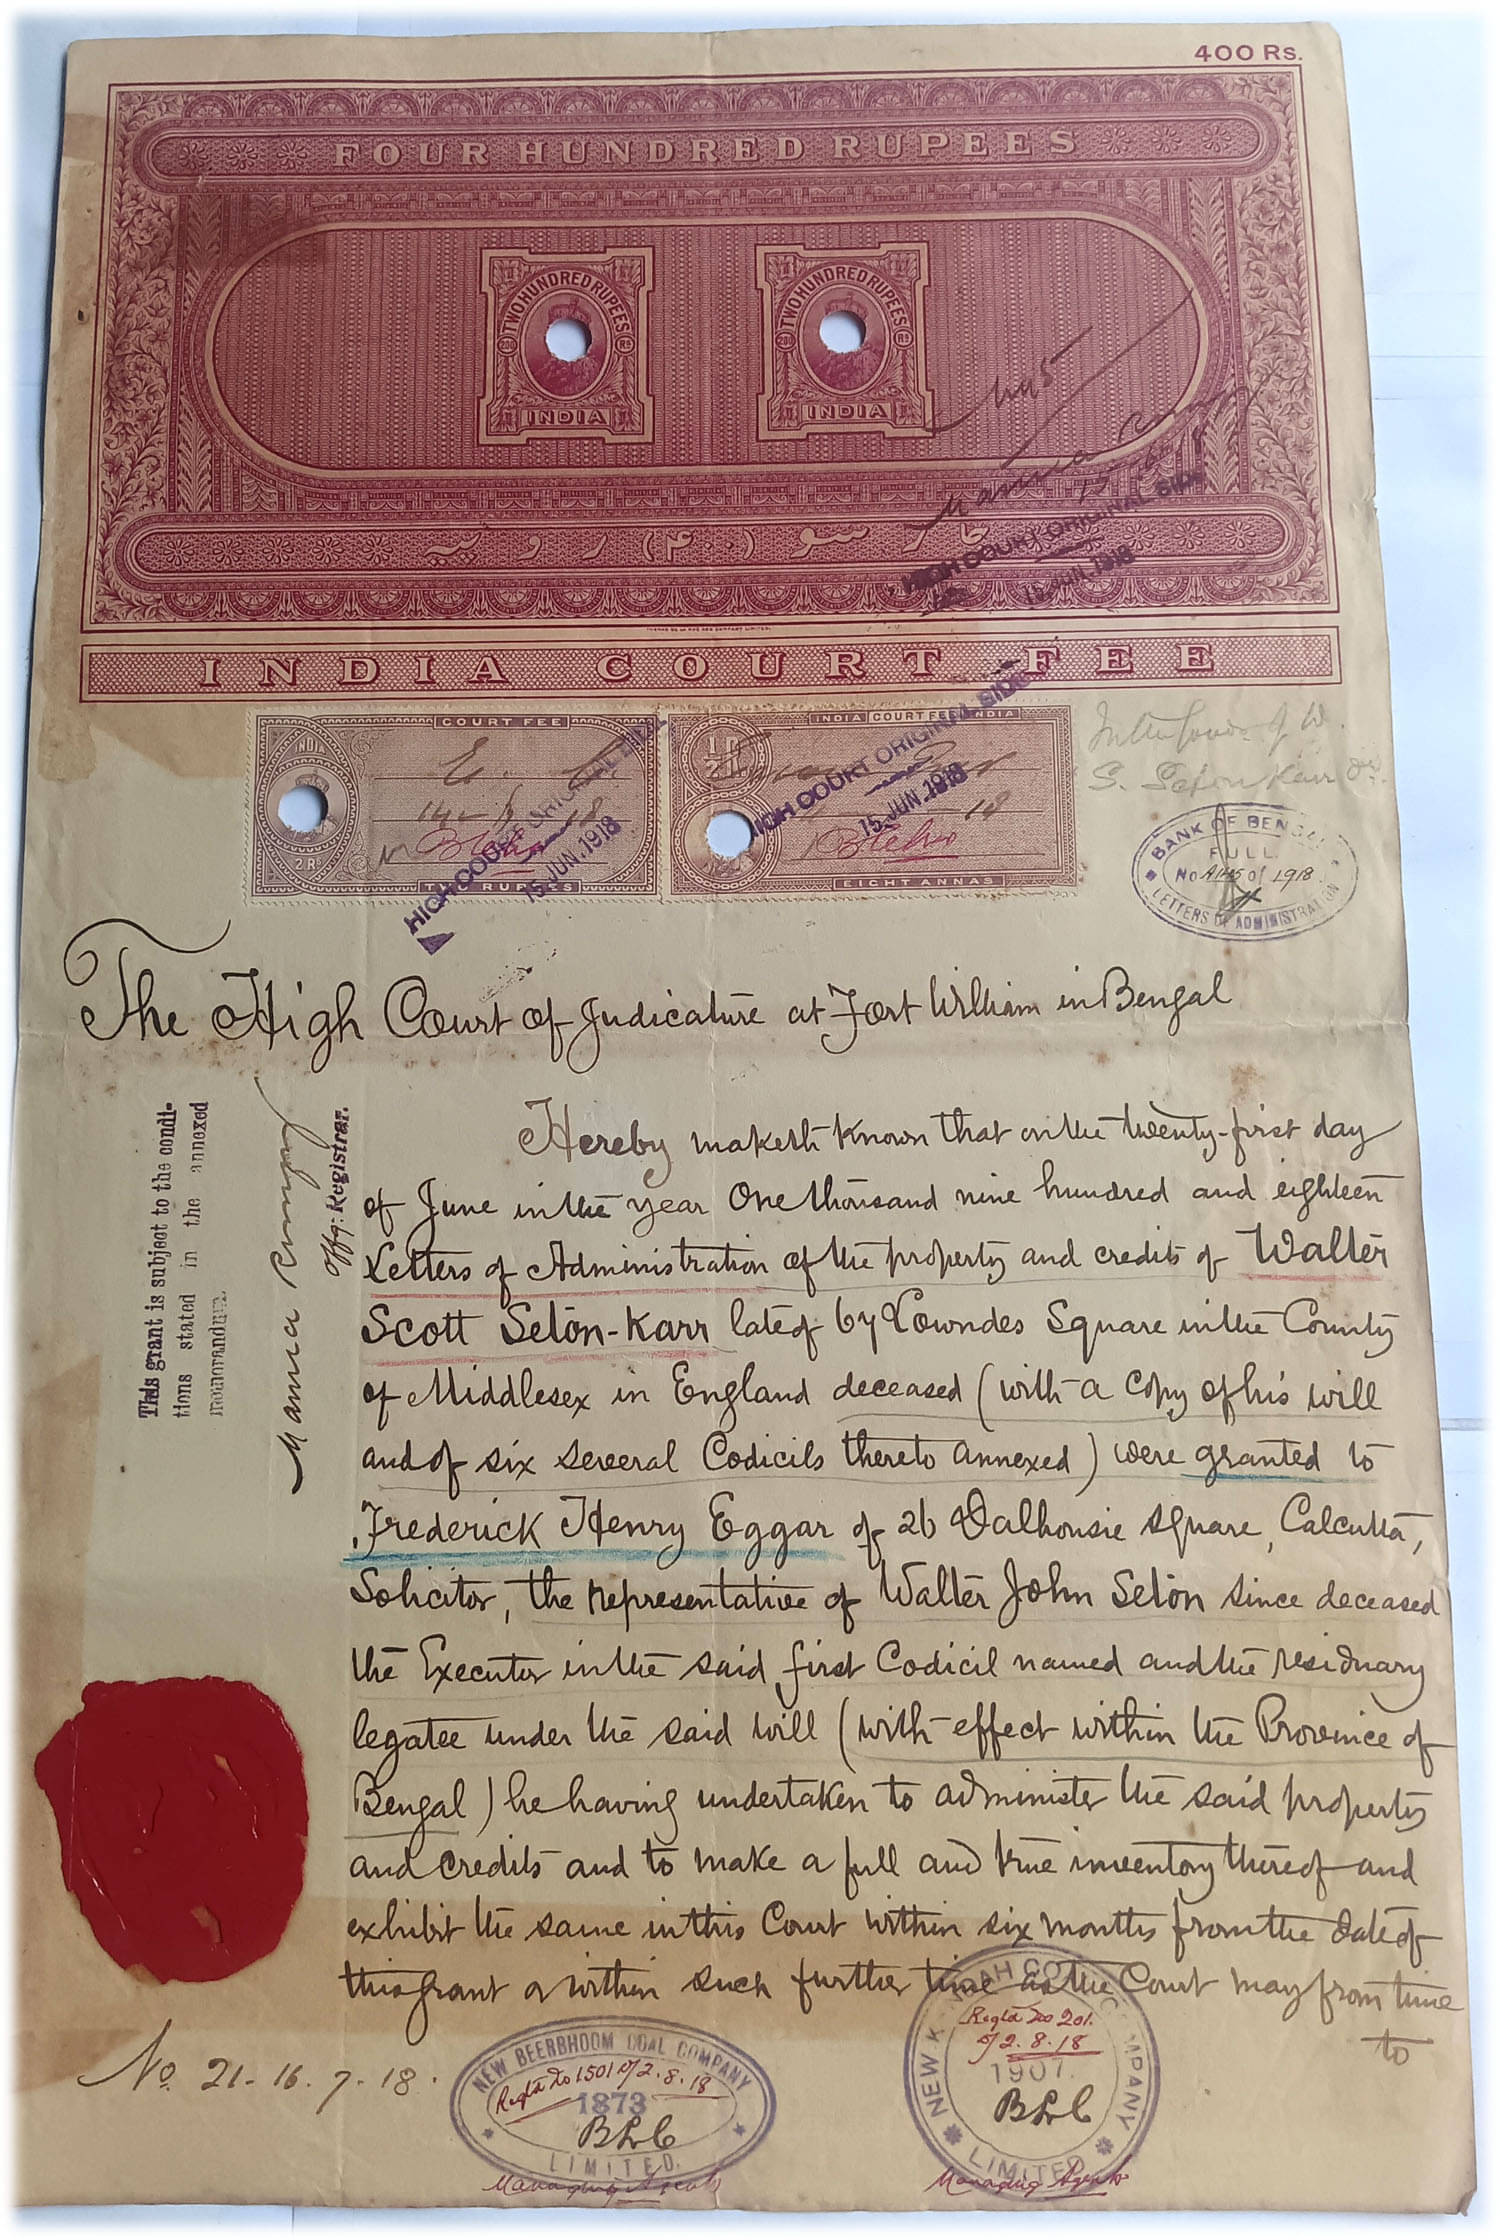 400 Rs.
FOUR HUNDRED RUPEES
TWO HUNDRED RUPEES
200 Rs
INDIA
TWO HUNDRED RUPEES
200 Rs
INDIA
15-6-18
HIGH COURT ORIGINAL SIDE
15 JUN. 1918
چار سو (۴۰۰) روپیہ
THOMAS DE LA RUE AND COMPANY LIMITED.
INDIA COURT FEE
COURT FEE
INDIA
2 Rs
TWO RUPEES
HIGH COURT ORIGINAL SIDE
15 JUN. 1918
INDIA COURT FEE INDIA
EIGHT ANNAS
HIGH COURT ORIGINAL SIDE
15 JUN. 1918
In the Goods of W.
S. Seton Karr
BANK OF BENGAL
FULL
No of 1918
LETTERS OF ADMINISTRATION
The High Court of Judicature at Fort William in Bengal
This grant is subject to the condi-
tions stated in the annexed
memorandum.
Offg: Registrar.
Hereby maketh known that on the twenty-first day
of June in the year One thousand nine hundred and eighteen
Letters of Administration of the property and credits of Walter
Scott Seton-Karr late of 67 Lowndes Square in the County
of Middlesex in England deceased (with a copy of his will
and of six several Codicils thereto annexed) were granted to
Frederick Henry Eggar of 26 Dalhousie Square, Calcutta,
Solicitor, the representative of Walter John Seton since deceased
the Executor in the said first Codicil named and the residuary
legatee under the said will (with effect within the Province of
Bengal) he having undertaken to administer the said property
and credits and to make a full and true inventory thereof and
exhibit the same in this Court within six months from the date of
this grant or within such further time as the Court may from time
to
No. 21-16.7.18.
NEW BEERBHOOM COAL COMPANY
Regtd No 1501 of 2.8.18
1873
LIMITED.
Managing Agents
COMPANY
Regtd No 201.
of 2.8.18
1907.
LIMITED
Managing Agents